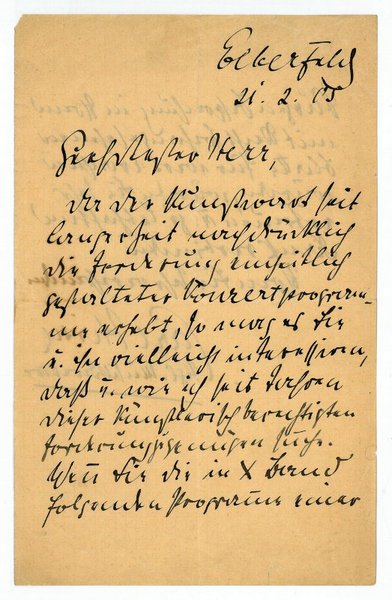 Elberfeld
21. 2. 05
Geehrtester Herr,
da der Kunstwart seit
langer Zeit nachdrücklich
die Forderung einheitlich
gestalteter Konzertprogram-
me erhebt, so mag es Sie
u. ihn vielleicht interessieren,
daß u. wie ich seit Jahren
dieser künstlerisch berechtigten
Forderung genügen suche.
Wenn Sie die in X Band
folgenden Programme einer